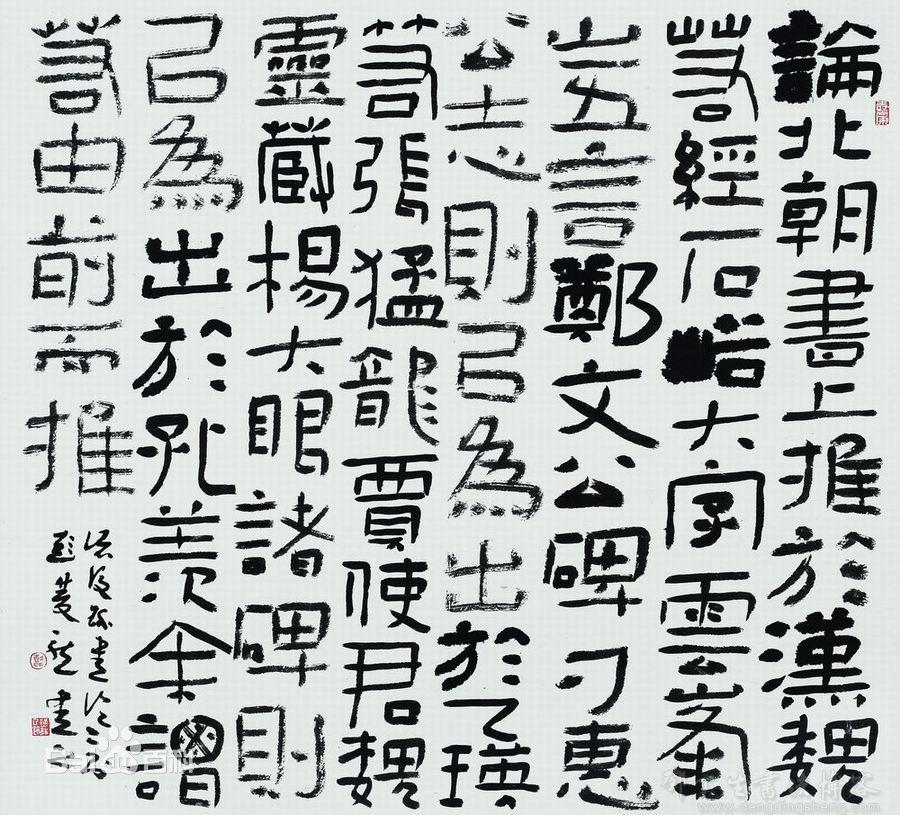 論北朝書上推於漢魏
若經石峪大字雲峯
山五言鄭文公碑刁惠
公志則㠯為出於乙瑛
若張猛龍賈使君魏
靈藏楊大眼諸碑則
㠯為出於孔羨余謂
若由前而推
Bai 百科
www.dengdingsheng.com